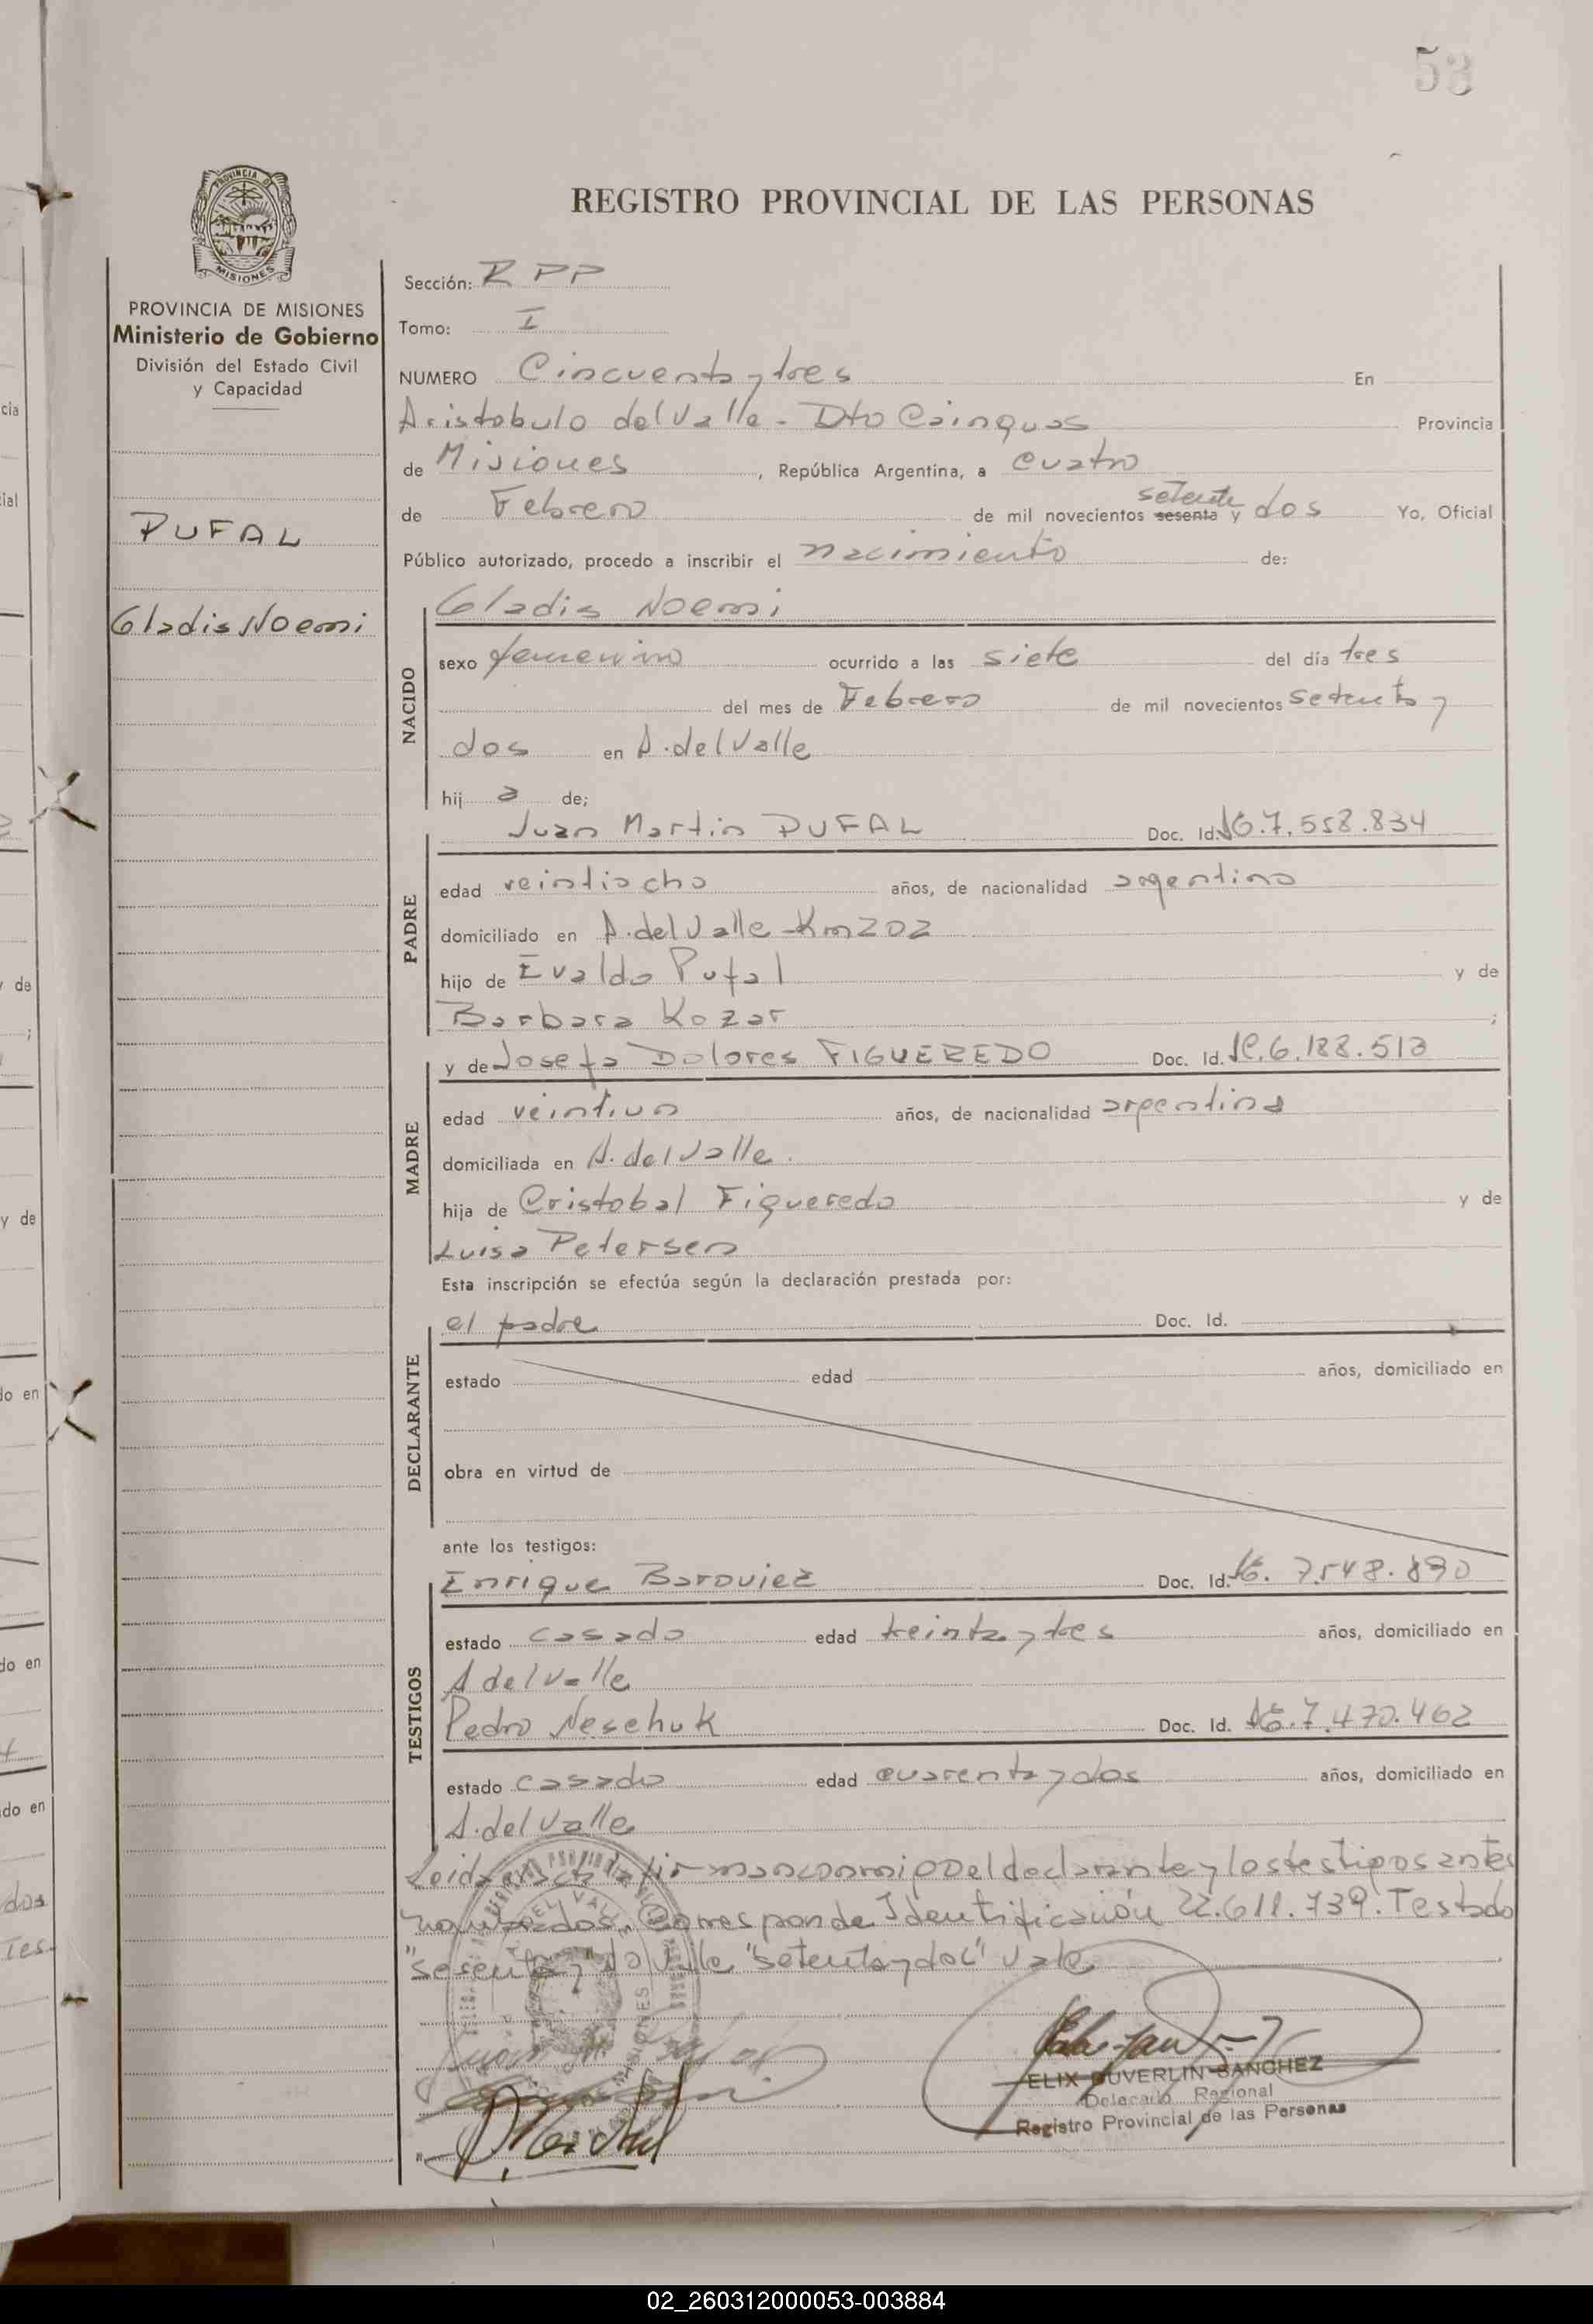 53
PROVINCIA DE
MISIONES
REGISTRO PROVINCIAL DE LAS PERSONAS
PROVINCIA DE MISIONES
Ministerio de Gobierno
División del Estado Civil
y Capacidad
PUFAL
Gladis Noemi
Sección: RPP
Tomo: I
NUMERO Cincuenta y tres En
Aristobulo del Valle - Dto Cainguas Provincia
de Misiones, República Argentina, a cuatro
de Febrero de mil novecientos sesenta y setenta dos Yo, Oficial
Público autorizado, procedo a inscribir el nacimiento de:
NACIDO
Gladis Noemi
sexo femenino ocurrido a las siete del día tres
del mes de Febrero de mil novecientos setenta y
dos en A. del Valle
hij a de;
PADRE
Juan Martin PUFAL Doc. Id. 7.558.834
edad veintiocho años, de nacionalidad argentino
domiciliado en A. del Valle - Km 202
hijo de Evaldo Pufal y de
Barbara Kozar ;
MADRE
y de Josefa Dolores FIGUEREDO Doc. Id. LC. 6.188.513
edad veintiun años, de nacionalidad argentina
domiciliada en A. del Valle.
hija de Cristobal Figueredo y de
Luisa Petersen
Esta inscripción se efectúa según la declaración prestada por:
DECLARANTE
el padre Doc. Id.
estado edad años, domiciliado en
obra en virtud de
ante los testigos:
TESTIGOS
Enrique Baroviez Doc. Id. 7.548.890
estado casado edad treinta y tres años, domiciliado en
A del Valle
Pedro Neschuk Doc. Id. 7.470.462
estado casado edad cuarenta y dos años, domiciliado en
A. del Valle
Leida el acta la firman conmigo el declarante y los testigos antes
nombrados. Corresponde Identificación 22.611.739. Testado
"sesenta y" no vale "setenta y dos" vale
ELIX DUVERLIN SANCHEZ
Delegado Regional
Registro Provincial de las Personas
02_260312000053-003884